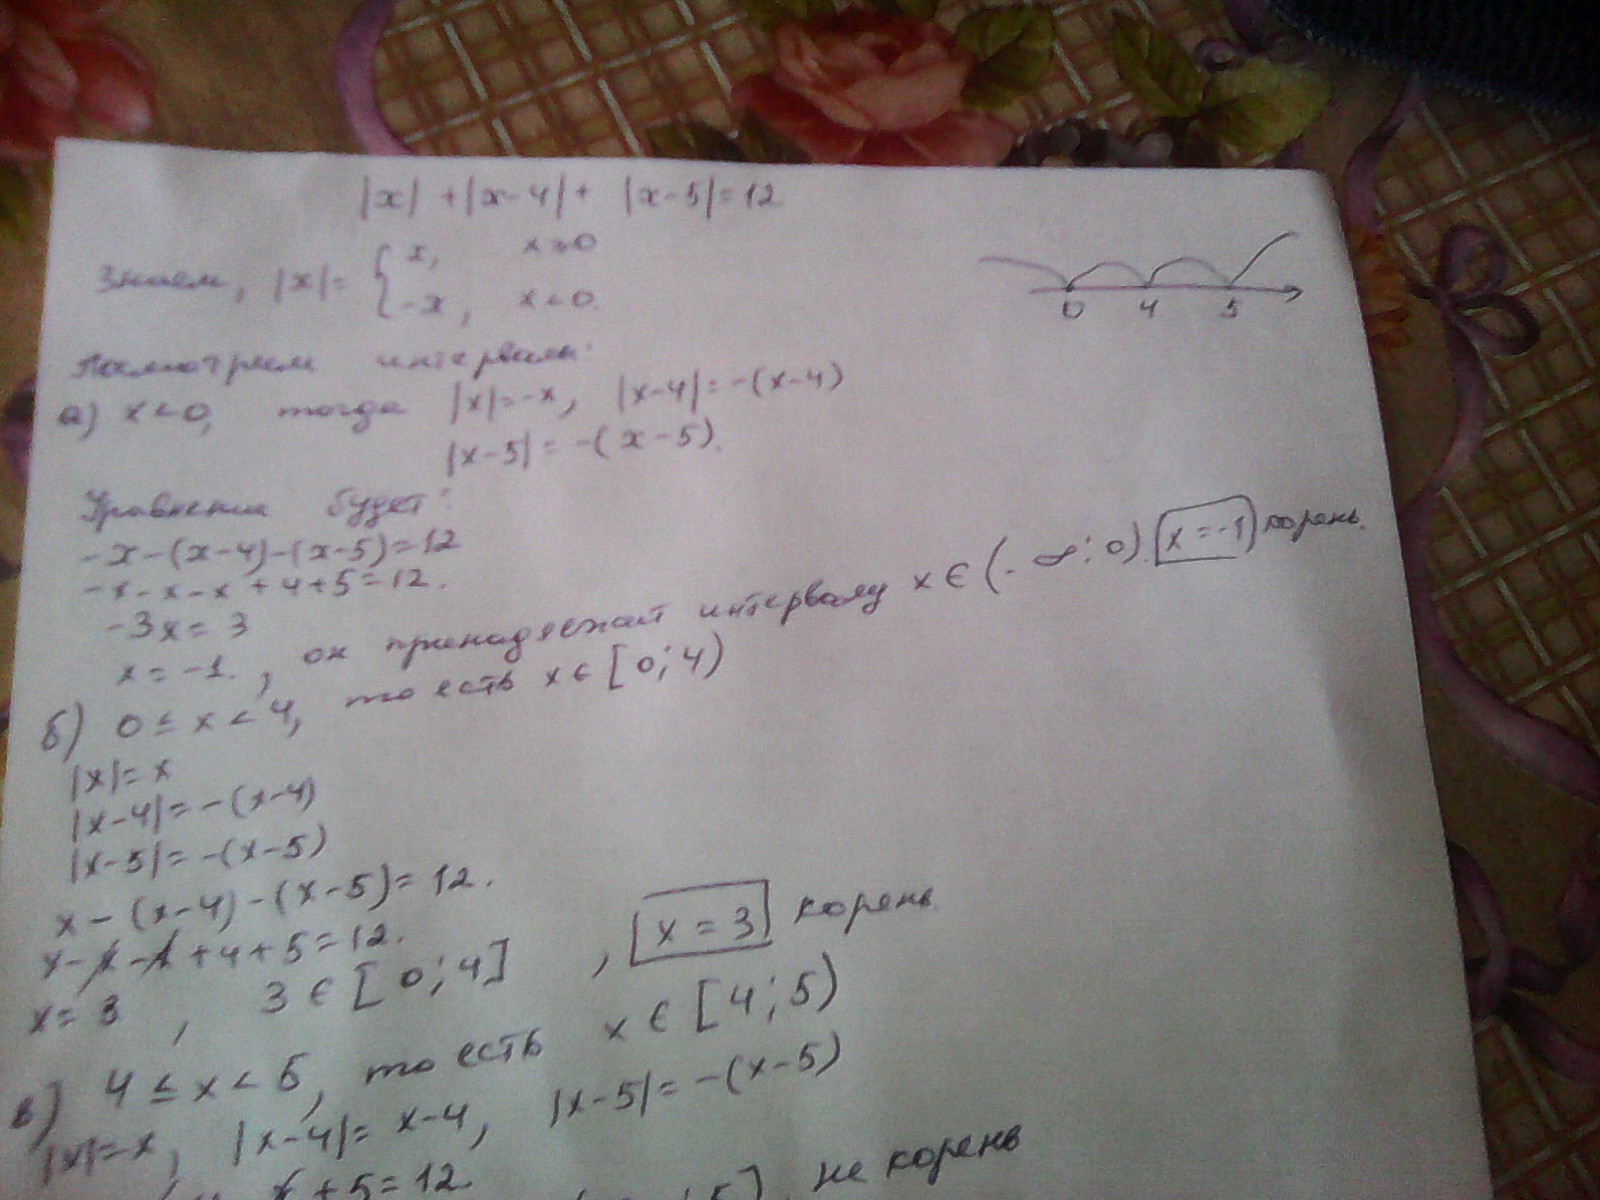 |x| + |x-4| + |x-5| = 12
Знаем, |x| = { x, x ≥ 0
-x, x < 0.
0 4 5
Посмотрим интервалы:
а) x < 0, тогда |x| = -x, |x-4| = -(x-4)
|x-5| = -(x-5).
Уравнение будет:
-x-(x-4)-(x-5)=12
-x-x-x+4+5=12.
-3x = 3
x = -1. , он принадлежит интервалу x ∈ (-∞; 0). x = -1 корень.
б) 0 ≤ x < 4, то есть x ∈ [0; 4)
|x| = x
|x-4| = -(x-4)
|x-5| = -(x-5)
x-(x-4)-(x-5) = 12.
x-x-x+4+5=12.
x = 3 , 3 ∈ [0; 4] , x = 3 корень.
в) 4 ≤ x < 5, то есть x ∈ [4; 5)
|x| = x, |x-4| = x-4, |x-5| = -(x-5)
+5=12. 5] не корень